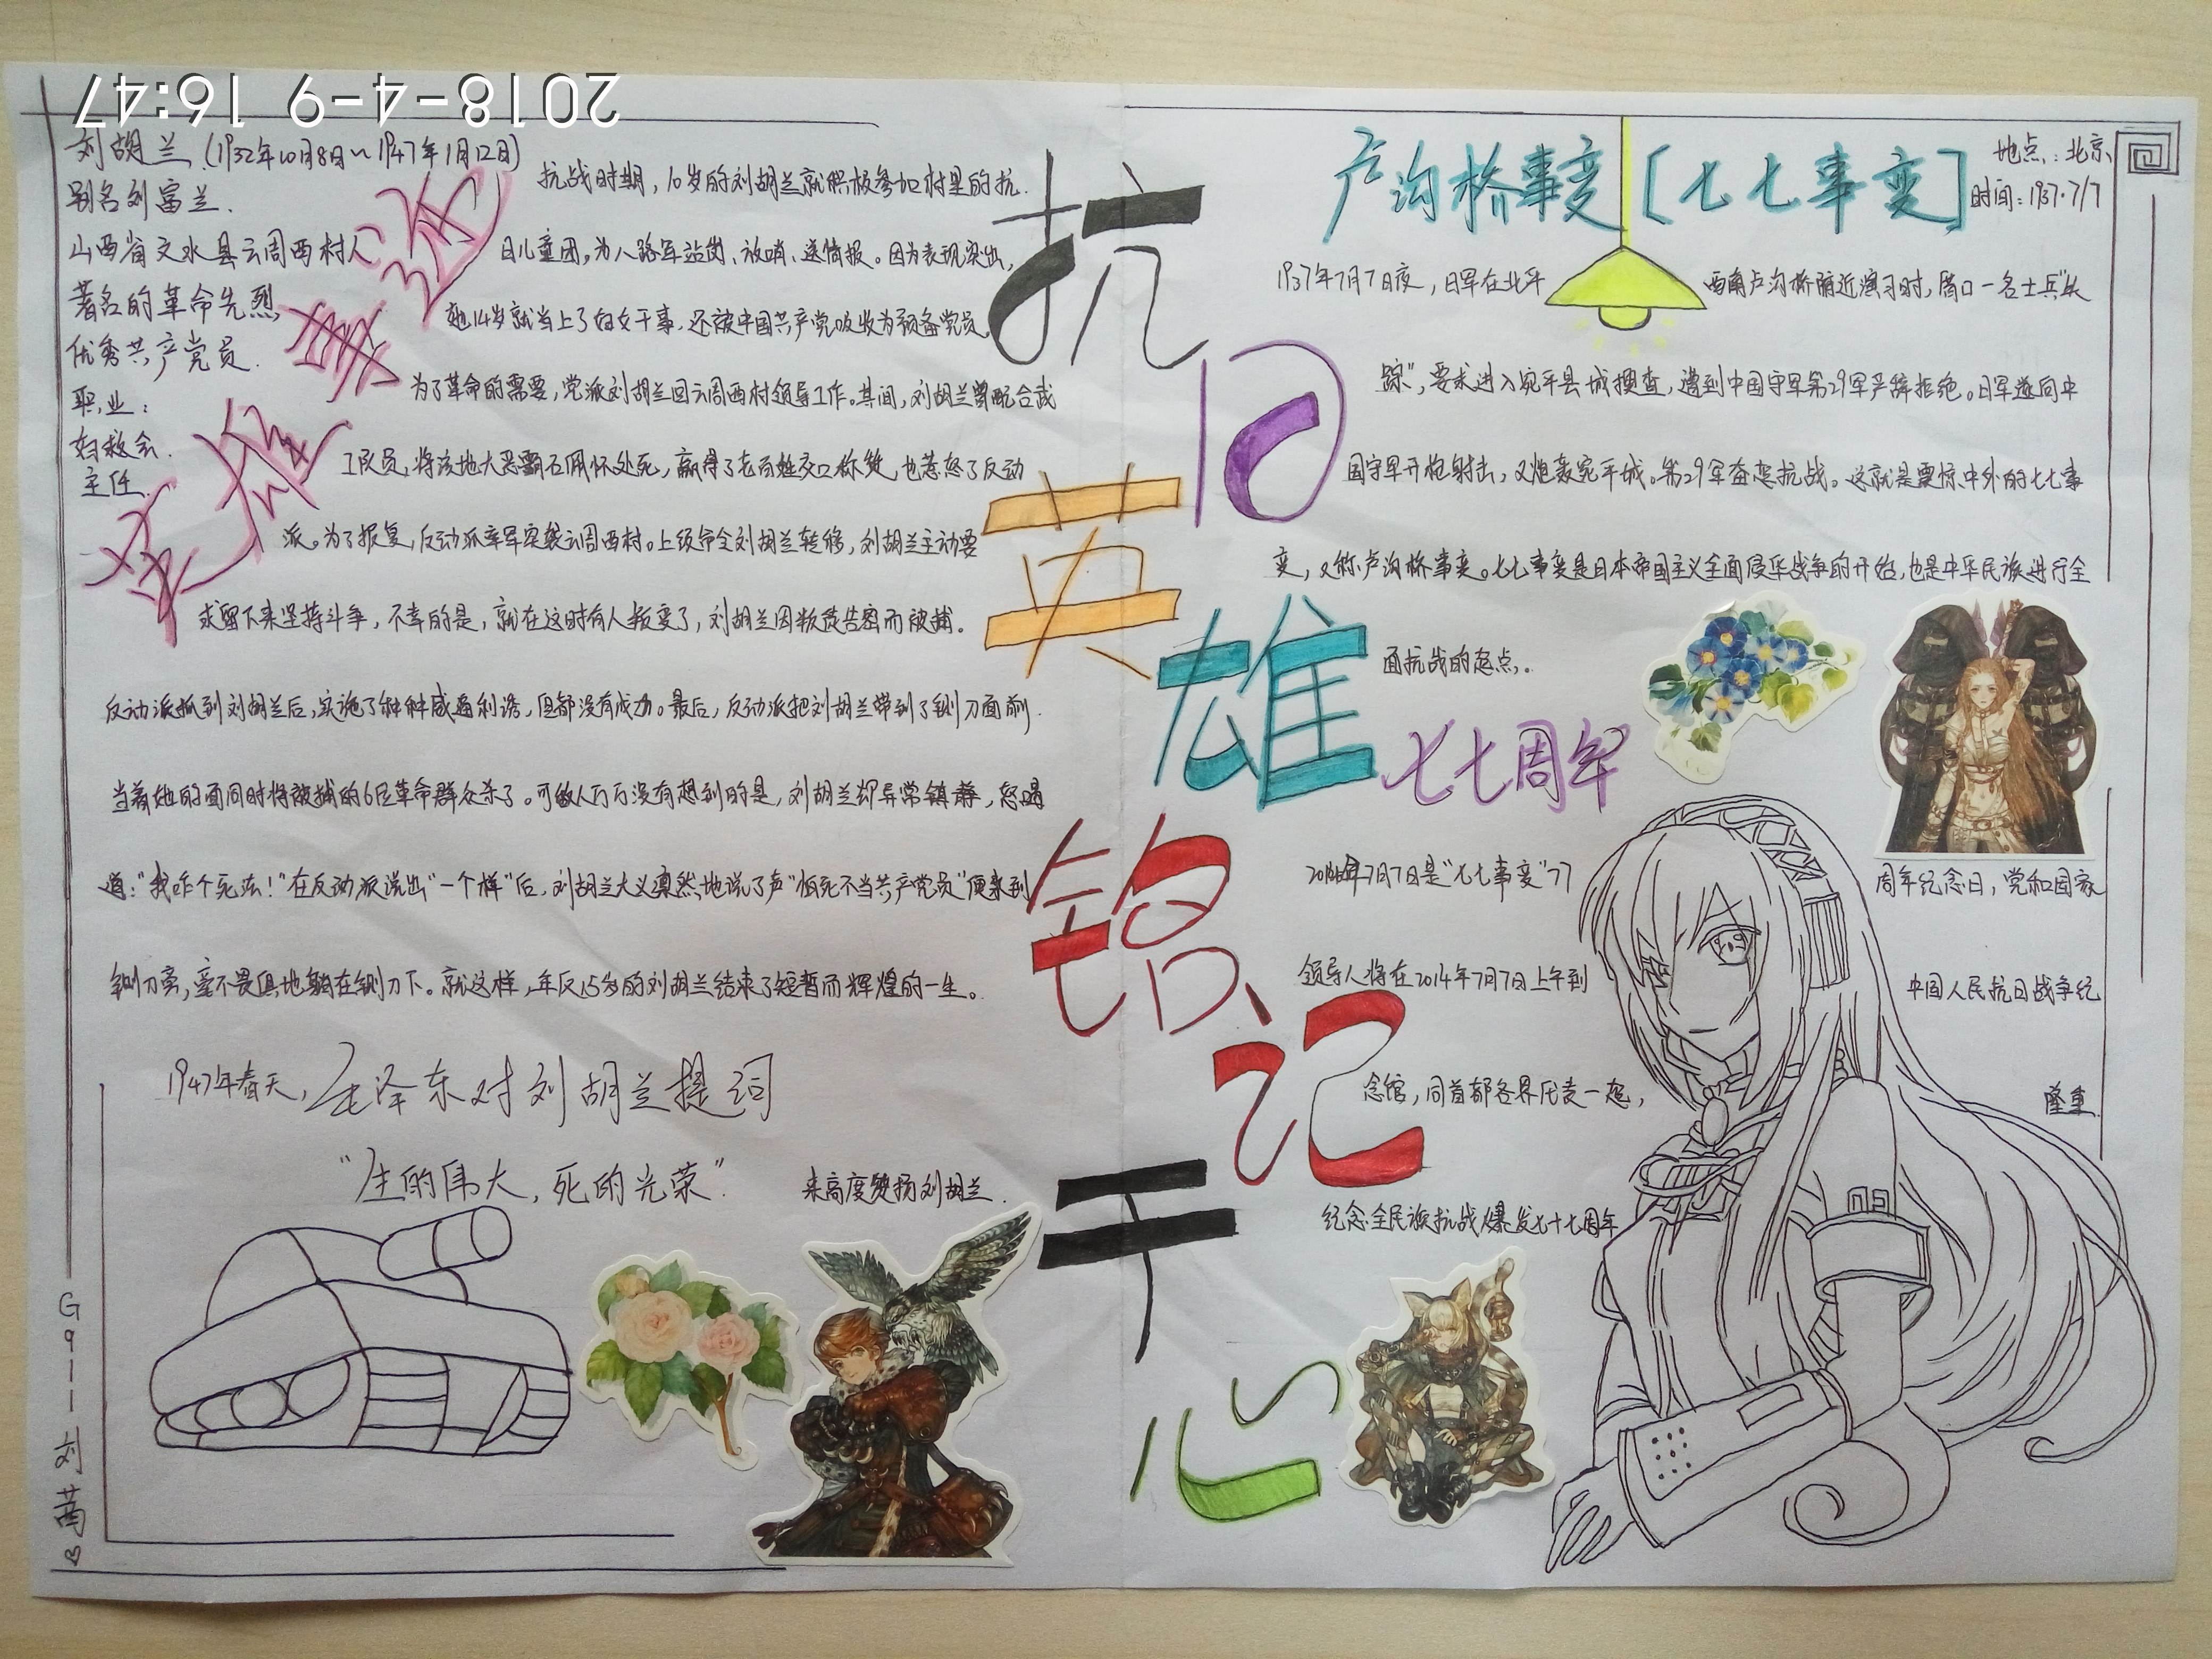 2018-4-9 16:47
刘胡兰(1932年10月8日~1947年1月12日)
别名刘富兰.
山西省文水县云周西村人
著名的革命先烈,
优秀共产党员.
职业:
妇救会.
主任.
英雄事迹
抗战时期,10岁的刘胡兰就积极参加村里的抗
日儿童团,为八路军站岗、放哨、送情报。因为表现突出,
她14岁就当上了妇女干事,还被中国共产党吸收为预备党员
为了革命的需要,党派刘胡兰回云周西村领导工作。其间,刘胡兰曾配合武
工队员,将该地大恶霸石佩怀处死,赢得了老百姓交口称赞,也惹怒了反动
派。为了报复,反动派率军突袭云周西村。上级命令刘胡兰转移,刘胡兰主动要
求留下来坚持斗争,不幸的是,就在这时有人叛变了,刘胡兰因叛徒告密而被捕。
反动派抓到刘胡兰后,实施了种种威逼利诱,但都没有成功。最后,反动派把刘胡兰带到了铡刀面前.
当着她的面同时将被捕的6位革命群众杀了。可敌人万万没有想到的是,刘胡兰却异常镇静,怒喝
道:"我咋个死法!"在反动派说出"一个样"后,刘胡兰大义凛然地说了声"怕死不当共产党员"便来到
铡刀旁,毫不畏惧地躺在铡刀下。就这样,年仅15岁的刘胡兰结束了短暂而辉煌的一生。
1947年春天,毛泽东对刘胡兰提词
"生的伟大,死的光荣".
来高度赞扬刘胡兰.
G911刘茜♡
抗日英雄铭记于心
卢沟桥事变[七七事变]
地点:北京
时间:1937.7/7
1937年7月7日夜,日军在北平西南卢沟桥附近演习时,借口一名士兵"失
踪",要求进入宛平县城搜查,遭到中国守军第29军严辞拒绝。日军遂向中
国守军开枪射击,又炮轰宛平城。第29军奋起抗战。这就是震惊中外的七七事
变,又称卢沟桥事变。七七事变是日本帝国主义全面侵华战争的开始,也是中华民族进行全
面抗战的起点,.
七七周年
7月7日是"七七事变"77周年纪念日,党和国家
领导人将在2014年7月7日上午到中国人民抗日战争纪
念馆,同首都各界代表一起,隆重
纪念全民族抗战爆发七十七周年